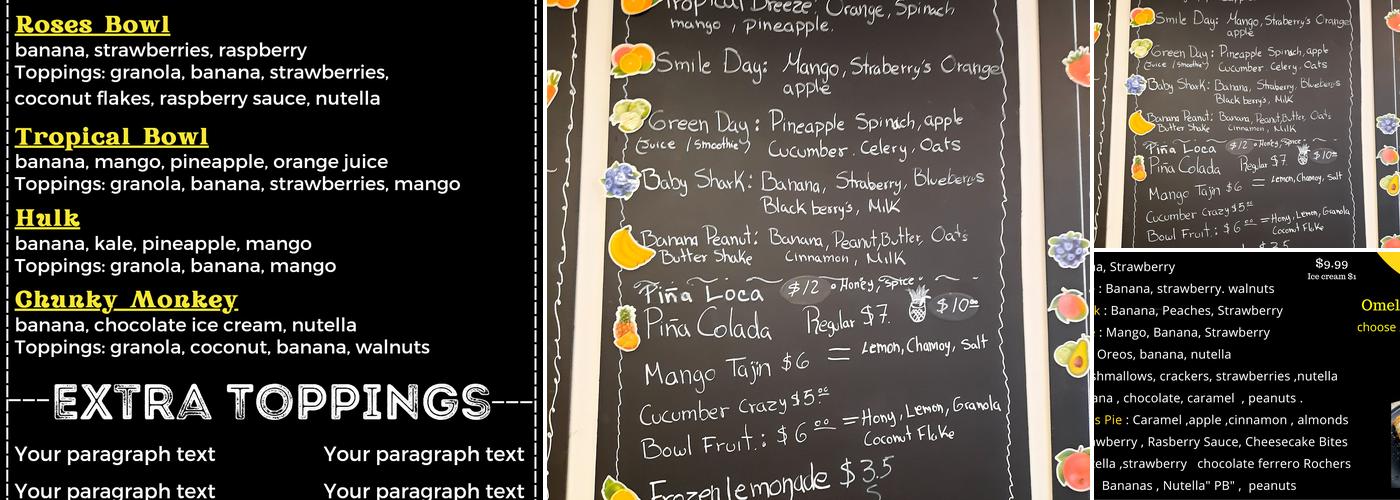 Roses Bowl
banana, strawberries, raspberry
Toppings: granola, banana, strawberries,
coconut flakes, raspberry sauce, nutella
Tropical Bowl
banana, mango, pineapple, orange juice
Toppings: granola, banana, strawberries, mango
Hulk
banana, kale, pineapple, mango
Toppings: granola, banana, mango
Chunky Monkey
banana, chocolate ice cream, nutella
Toppings: granola, coconut, banana, walnuts
EXTRA TOPPINGS
Your paragraph text Your paragraph text
Your paragraph text Your paragraph text
Tropical Breeze: Orange, Spinach
mango, Pineapple.
Smile Day: Mango, Straberry's Orange
apple
Green Day: Pineapple Spinach, apple
(Juice /Smoothie) Cucumber. Celery, Oats
Baby Shark: Banana, Straberry, Blueberrys
Black berry's, Milk
Banana Peanut: Banana, Peanut,Butter, Oats
Butter Shake Cinnamon, Milk
Piña Loca $12 Honey, Spice
Piña Colada Regular $7 $10
Mango Tajin $6 = Lemon, Chamoy, Salt
Cucumber Crazy $5.00
Bowl Fruit: $6.00 = Hony, Lemon, Granola
Coconut Flake
Frozen lemonade $3.5
Smile Day: Mango, Straberry's Orange
apple
Green Day: Pineapple Spinach, apple
(Juice /Smoothie) Cucumber Celery. Oats
Baby Shark: Banana, Straberry, Blueberrys
Black berry's, Milk
Banana Peanut: Banana, Peanut,Butter, Oats
Butter Shake Cinnamon, Milk
Piña Loca $12 Honey, Spice
Piña Colada Regular $7 $10
Mango Tajin $6 = Lemon, Chamoy, Salt
Cucumber Crazy $5.00
Bowl Fruit: $6.00 = Hony, Lemon, Granola
Coconut Flake
$3.5
na, Strawberry
$9.99
Ice cream $1
: Banana, strawberry. walnuts
k : Banana, Peaches, Strawberry
Omel
: Mango, Banana, Strawberry
choose
Oreos, banana, nutella
shmallows, crackers, strawberries ,nutella
ana , chocolate, caramel , peanuts .
s Pie : Caramel ,apple ,cinnamon , almonds
awberry , Rasberry Sauce, Cheesecake Bites
tella ,strawberry chocolate ferrero Rochers
Bananas , Nutella" PB" , peanuts